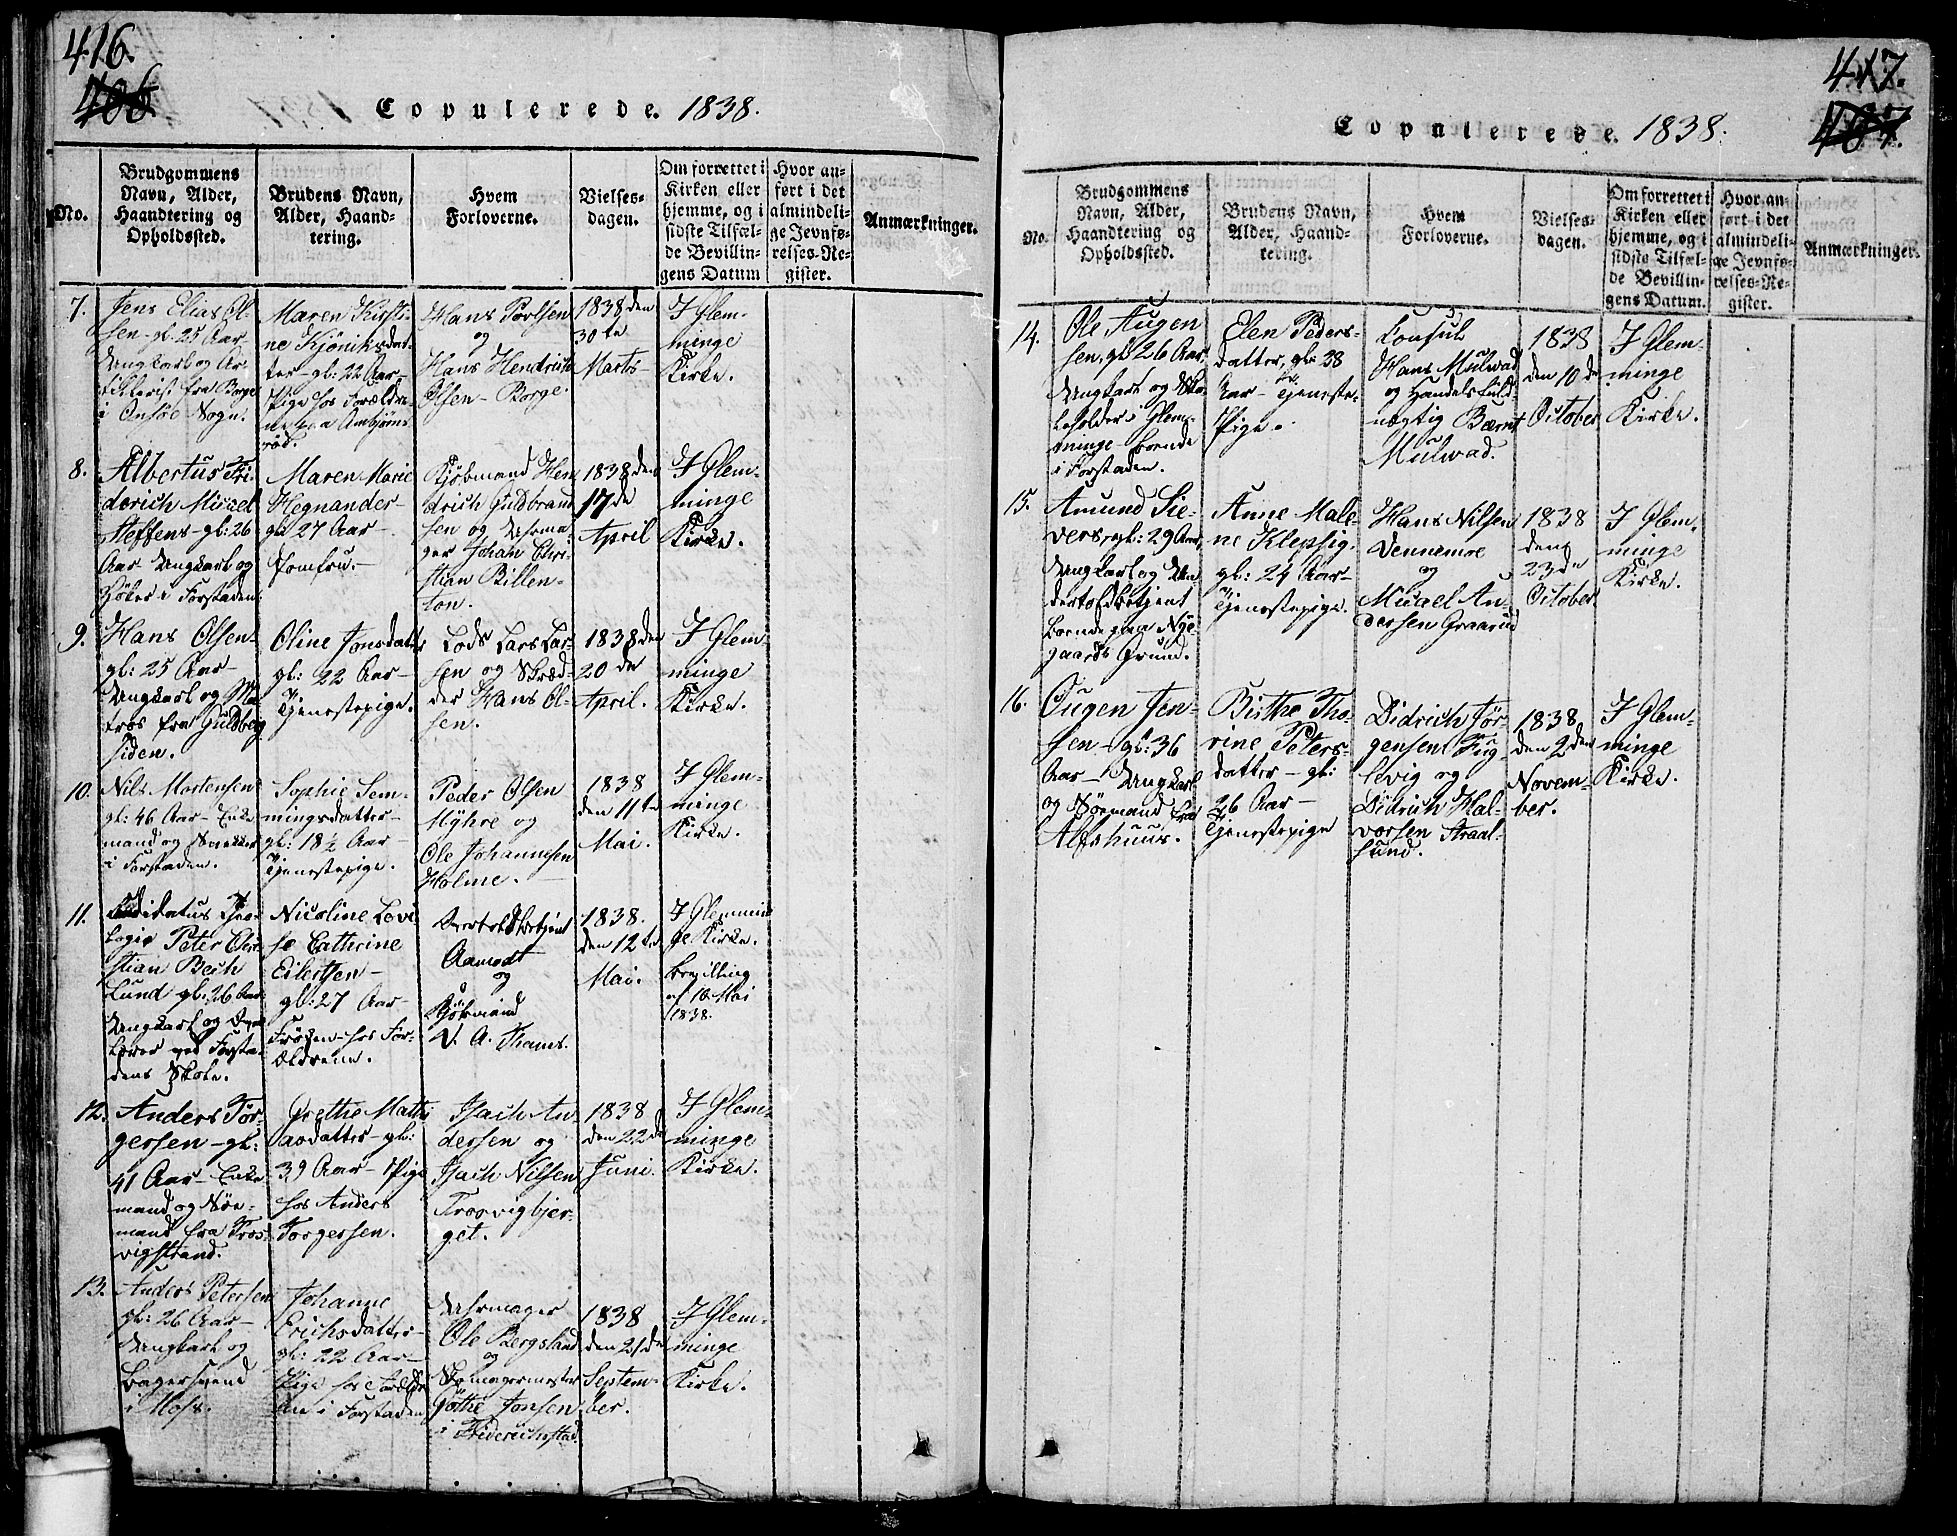 416.
406
Copulerede. 1838.
No.
Brudgommens
Navn, Alder,
Haandtering og
Opholdssted.
Brudens Navn,
Alder, Haand-
tering.
Hvem
Forloverne.
Vielses-
dagen.
Om forrettet i
Kirken eller
hjemme, og i
sidste Tilfæl-
de Bevillin-
gens Datum
Hvor an-
ført i det
almindeli-
ge Jevnfø-
relses-Re-
gister.
Anmærkninger.
7.
Jens Elias Ol-
sen - gl. 25 Aar
Ungkarl og Ar-
tillerist fra Borge
i Onsøe Sogn.
Maren Kirsti-
ne Kjöniksdat-
ter - gl: 22 Aar -
Pige hos Forældre-
ne paa Ambjörns-
röd.
Hans Povlsen
og
Hans Hendrich
Olsen - Borge.
1838 den
30te
Marts -
I Glem-
minge
Kirke.
8.
Albertus Fri-
derich Micael
Steffens - gl: 26
Aar Ungkarl og
Höker i Forstaden.
Maren Marie
Hegnander -
gl 27 Aar -
Jomfru. -
Kjøbmand Hen-
drich Guldbrand-
sen og Uhrma-
ger Johan Chri-
stian Billen-
ton.
1838 den
17de
April
I Glem-
minge
Kirke.
9.
Hans Olsen -
gl: 25 Aar -
Ungkarl og Ma-
tros fra Guldberg
siden.
Oline Jonsdatter
gl: 22 Aar -
Tjenestepige.
Lods Lars Lar-
sen og Skræd-
der Hans Ol-
sen.
1838 den
20de
April.
I Glem-
minge
Kirke.
10.
Nils Mortensen
gl: 46 Aar - Enke-
mand og Snekker
i Forstaden.
Sophie Sem-
mingsdatter -
gl: 18½ Aar -
Tjenestepige.
Peder Olsen
Myhre og
Ole Johannesen
Holme. -
1838
den 11te
Mai.
I Glem-
minge
Kirke.
11.
Candidatus Theo-
logie Peter Chri-
stian Bech
Lund gl: 26 Aar
Ungkarl og
Lærer ved Forsta-
dens Skole.
Nicoline Lovi-
se Cathrine
Eilertsen -
gl: 27 Aar -
Frøken - hos For-
ældrene.
Overtoldbetjent
Aamodt
og
Kjøbmand
V. A. Thams.
1838.
den 12te
Mai.
I Glemmin
ge Kirke.
Bevilling
af 10 Mai
1838.
12.
Anders Tor-
gersen - gl:
41 Aar - Enke-
mand og Söe-
mand fra Tros-
vigstrand.
Grethe Mathi-
asdatter - gl:
39 Aar - Pige
hos Anders
Torgersen.
Isach An-
dersen og
Isach Nilsen
Trosvigbjer-
get.
1838
den 22de
Juni.
I Glem-
minge
Kirke.
13.
Anders Petersen
gl: 26 Aar -
Ungkarl og
Bagersvend
i Moss.
Johanne
Erichsdatter -
gl: 22 Aar -
Pige hos Foræld-
rne i Forstaden
Uhrmager
Ole Bergsland
og
Skomagermester
Göthe Jonsen
i Friderichsstad
1838
den 21de
Septem-
ber.
I Glem-
minge
Kirke.
417.
407.
Copulerede. 1838.
No.
Brudgommens
Navn, Alder,
Haandtering og
Opholdssted.
Brudens Navn,
Alder, Haand-
tering.
Hvem
Forloverne.
Vielses-
dagen.
Om forrettet i
Kirken eller
hjemme, og i
sidste Tilfæl-
de Bevillin-
gens Datum.
Hvor an-
ført i det
almindeli-
ge Jevnfø-
relses-Re-
gister.
Anmærkninger.
14.
Ole Augen
sen, gl: 26 Aar,
Ungkarl og Sko-
leholder i Glem-
minge - boende
i Forstaden.
Elen Peders-
datter, gl: 38
Aar - Tjeneste-
Pige.
Consul
Hans Mulwad
og Handelsfuld-
mægtig Bernt
Mulwad.
1838
den 10de
October
I Glem-
minge
Kirke.
15.
Amund Sie-
vers, gl: 29 Aar,
Ungkarl og Un-
dertoldbetjent
boende paa Nye-
gaards Grund.
Anne Male-
ne Klepsig.
gl: 24 Aar -
Tjenestepige.
Hans Nilsen
Vennemoe
og
Micael An-
dersen Graarud
1838
den
23de
October
I Glem-
minge
Kirke.
16.
Ougen Jen-
sen - gl: 36
Aar - Ungkarl
og Söemand fra
Alfshuus.
Birthe Tho-
rine Peters-
datter - gl:
26 Aar -
Tjenestepige
Didrich Jör-
gensen Fug-
levig og
Didrich Hal-
vorsen Straal-
sund.
1838
den 2den
Novem-
ber.
I Glem-
minge
Kirke.